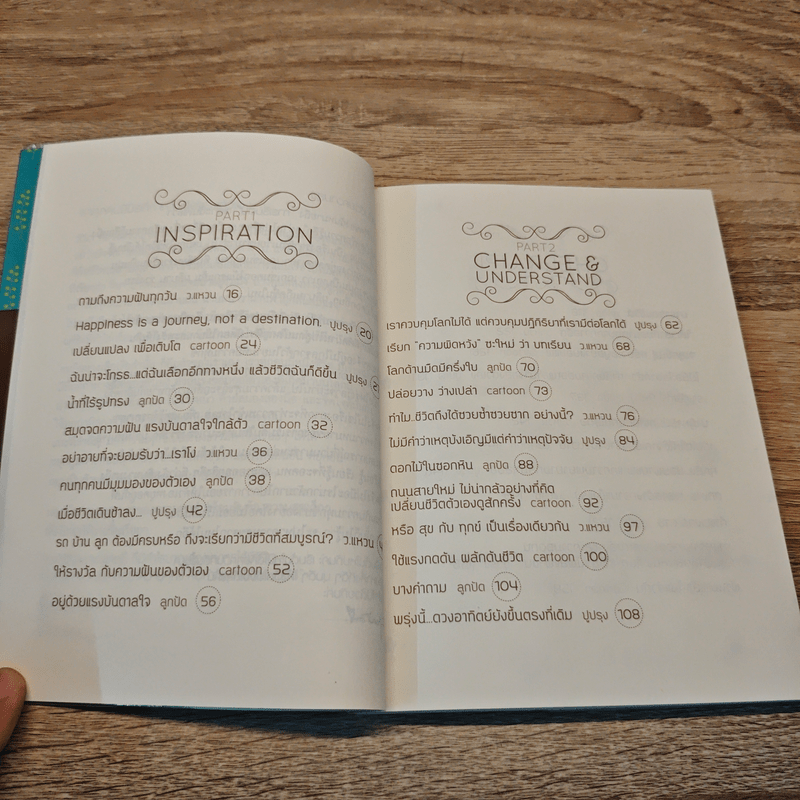 PART1
INSPIRATION
ถามถึงความฝันทุกวัน ว.แหวน 16
Happiness is a journey, not a destination. ปูปรุง 20
เปลี่ยนแปลง เพื่อเติบโต cartoon 24
ฉันน่าจะโกรธ...แต่ฉันเลือกอีกทางหนึ่ง แล้วชีวิตฉันก็ดีขึ้น ปูปรุง
น้ำที่ไร้รูปทรง ลูกปัด 30
สมุดจดความฝัน แรงบันดาลใจใกล้ตัว cartoon 32
อย่าอายที่จะยอมรับว่า...เราโง่ ว.แหวน 36
คนทุกคนมีมุมมองของตัวเอง ลูกปัด 38
เมื่อชีวิตเดินช้าลง... ปูปรุง 42
รถ บ้าน ลูก ต้องมีครบหรือ ถึงจะเรียกว่ามีชีวิตที่สมบูรณ์? ว.แหวน
ให้รางวัล กับความฝันของตัวเอง cartoon 52
อยู่ด้วยแรงบันดาลใจ ลูกปัด 56
PART2
CHANGE &
UNDERSTAND
เราควบคุมโลกไม่ได้ แต่ควบคุมปฏิกิริยาที่เรามีต่อโลกได้ ปูปรุง 62
เรียก "ความผิดหวัง" ซะใหม่ ว่า บทเรียน ว.แหวน 68
โลกด้านมืดมีครึ่งใบ ลูกปัด 70
ปล่อยวาง ว่างเปล่า cartoon 73
ทำไม..ชีวิตถึงได้ซวยซ้ำซวยซาก อย่างนี้? ว.แหวน 76
ไม่มีคำว่าเหตุบังเอิญมีแต่คำว่าเหตุปัจจัย ปูปรุง 84
ดอกไม้ในซอกหิน ลูกปัด 88
ถนนสายใหม่ ไม่น่ากลัวอย่างที่คิด
เปลี่ยนชีวิตตัวเองดูสักครั้ง cartoon 92
หรือ สุข กับ ทุกข์ เป็นเรื่องเดียวกัน ว.แหวน 97
ใช้แรงกดดัน พลักดันชีวิต cartoon 100
บางคำถาม ลูกปัด 104
พรุ่งนี้...ดวงอาทิตย์ยังขึ้นตรงที่เดิม ปูปรุง 108